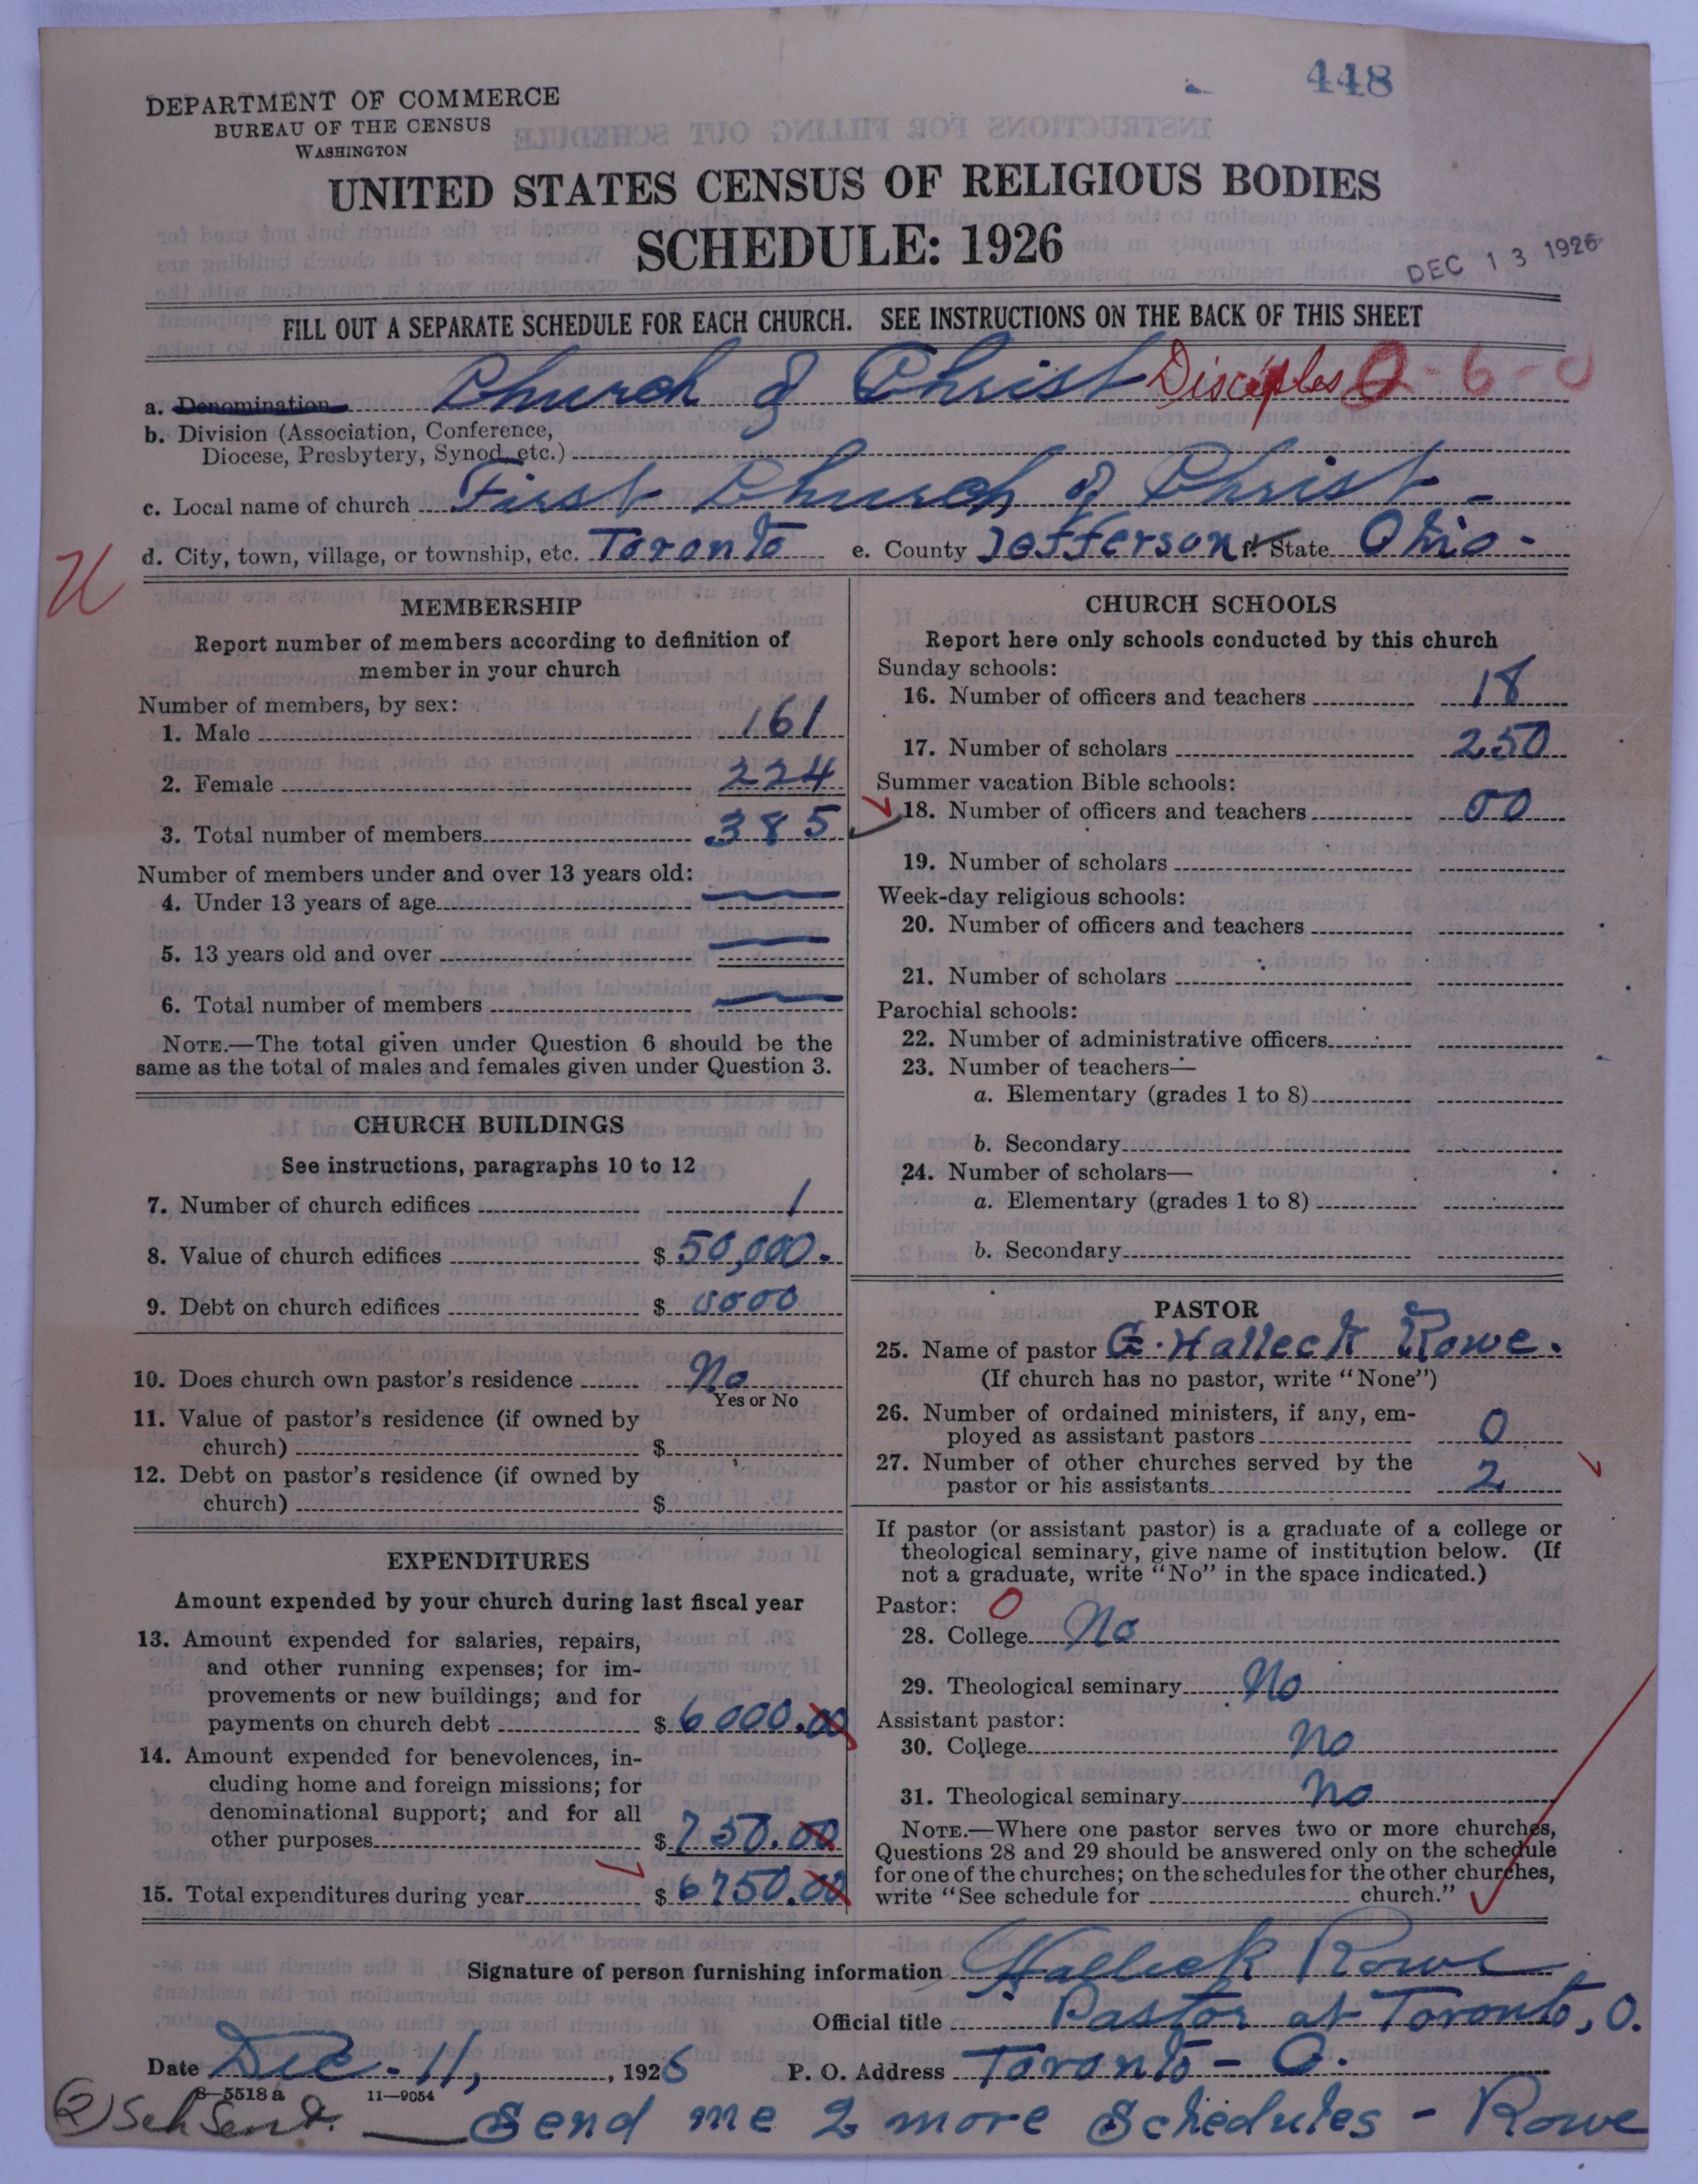 448
DEPARTMENT OF COMMERCE
BUREAU OF THE CENSUS
WASHINGTON
UNITED STATES CENSUS OF RELIGIOUS BODIES
SCHEDULE: 1926
DEC 13 1926
FILL OUT A SEPARATE SCHEDULE FOR EACH CHURCH. SEE INSTRUCTIONS ON THE BACK OF THIS SHEET
a. Denomination Church of Christ Disciples 2-6-0
b. Division (Association, Conference,
Diocese, Presbytery, Synod, etc.)
c. Local name of church First Church of Christ -
d. City, town, village, or township, etc. Toronto e. County Jefferson f. State Ohio -
MEMBERSHIP
Report number of members according to definition of
member in your church
Number of members, by sex:
1. Male 161
2. Female 224
3. Total number of members 385
Number of members under and over 13 years old:
4. Under 13 years of age —
5. 13 years old and over —
6. Total number of members —
NOTE.—The total given under Question 6 should be the
same as the total of males and females given under Question 3.
CHURCH BUILDINGS
See instructions, paragraphs 10 to 12
7. Number of church edifices 1
8. Value of church edifices $ 50,000.
9. Debt on church edifices $ 0000
10. Does church own pastor's residence No
Yes or No
11. Value of pastor's residence (if owned by
church) $
12. Debt on pastor's residence (if owned by
church) $
EXPENDITURES
Amount expended by your church during last fiscal year
13. Amount expended for salaries, repairs,
and other running expenses; for im-
provements or new buildings; and for
payments on church debt $ 6000.00
14. Amount expended for benevolences, in-
cluding home and foreign missions; for
denominational support; and for all
other purposes $ 750.00
15. Total expenditures during year $ 6750.00
CHURCH SCHOOLS
Report here only schools conducted by this church
Sunday schools:
16. Number of officers and teachers 18
17. Number of scholars 250
Summer vacation Bible schools:
18. Number of officers and teachers 00
19. Number of scholars
Week-day religious schools:
20. Number of officers and teachers
21. Number of scholars
Parochial schools:
22. Number of administrative officers
23. Number of teachers—
a. Elementary (grades 1 to 8)
b. Secondary
24. Number of scholars—
a. Elementary (grades 1 to 8)
b. Secondary
PASTOR
25. Name of pastor G. Halleck Rowe.
(If church has no pastor, write "None")
26. Number of ordained ministers, if any, em-
ployed as assistant pastors 0
27. Number of other churches served by the
pastor or his assistants 2
If pastor (or assistant pastor) is a graduate of a college or
theological seminary, give name of institution below. (If
not a graduate, write "No" in the space indicated.)
Pastor: 0
28. College No
29. Theological seminary No
Assistant pastor:
30. College No
31. Theological seminary No
NOTE.—Where one pastor serves two or more churches,
Questions 28 and 29 should be answered only on the schedule
for one of the churches; on the schedules for the other churches,
write "See schedule for church."
Signature of person furnishing information G. Halleck Rowe
Official title Pastor at Toronto, O.
Date Dec - 11, , 1926 P. O. Address Toronto - O.
8—5518 a 11—9054
(2) Sch Sent. — Send me 2 more Schedules - Rowe